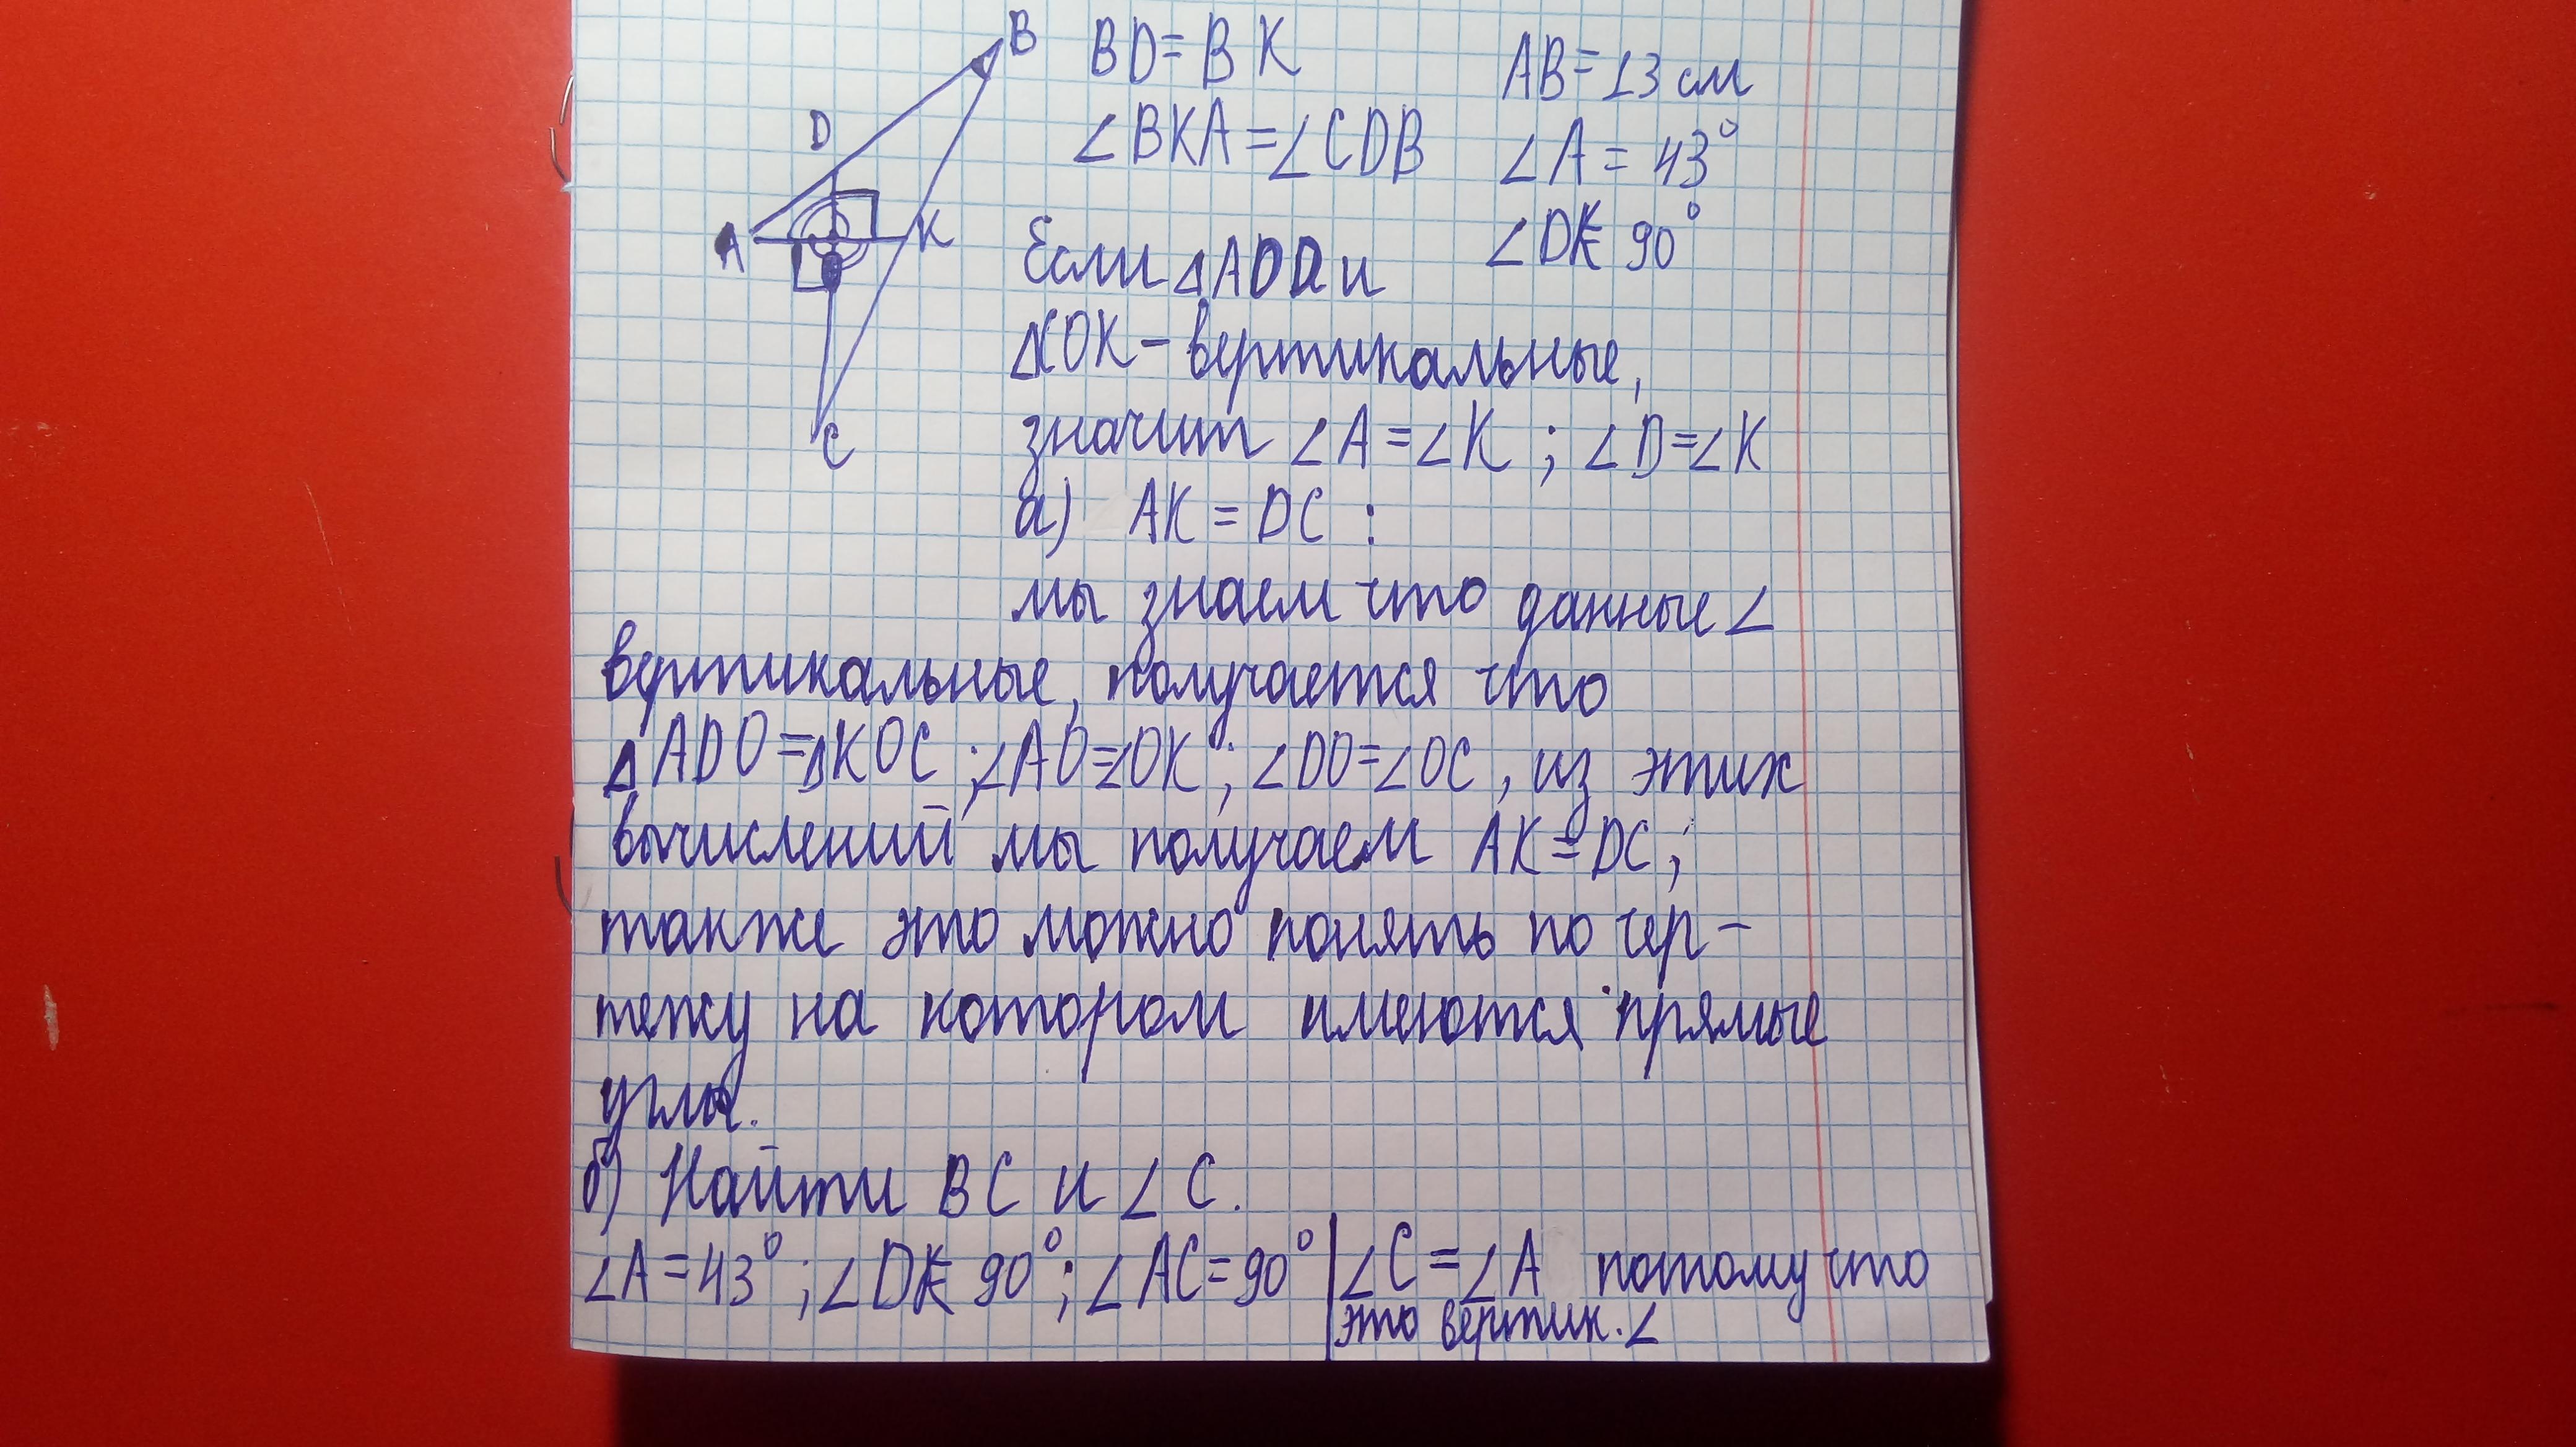 B
BD = BK
AB = 13 см
D
∠BKA = ∠CDB
∠A = 43°
A
K
∠DK = 90°
Если △ADO и
△KOK - вертикальные,
C
значит ∠A = ∠K ; ∠D = ∠K
а) AK = DC :
мы знаем что данные ∠
вертикальные, получается что
△ADO = △KOC ; ∠AO = ∠OK ; ∠DO = ∠OC , из этих
вычислений мы получаем AK = DC ;
также это можно понять по чер-
тежу на котором имеются прямые
углы.
б) Найти BC и ∠C.
∠A = 43° ; ∠DK = 90° ; ∠AC = 90° | ∠C = ∠A потому что
это вертик. ∠